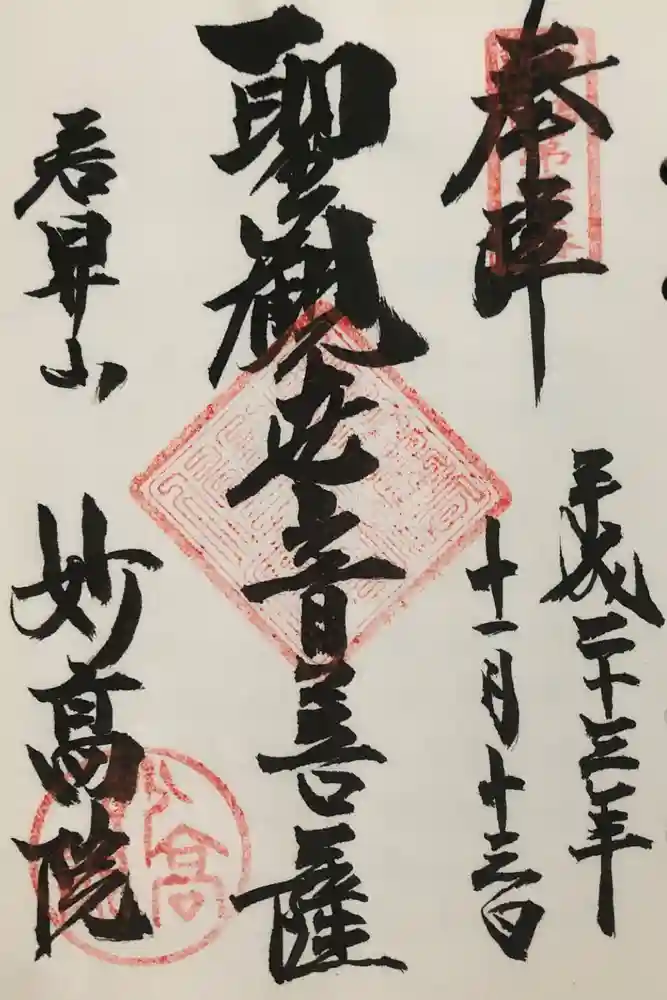 奉拝
平成二十三年
十一月十三日
聖観世音菩薩
若昇山
妙高院